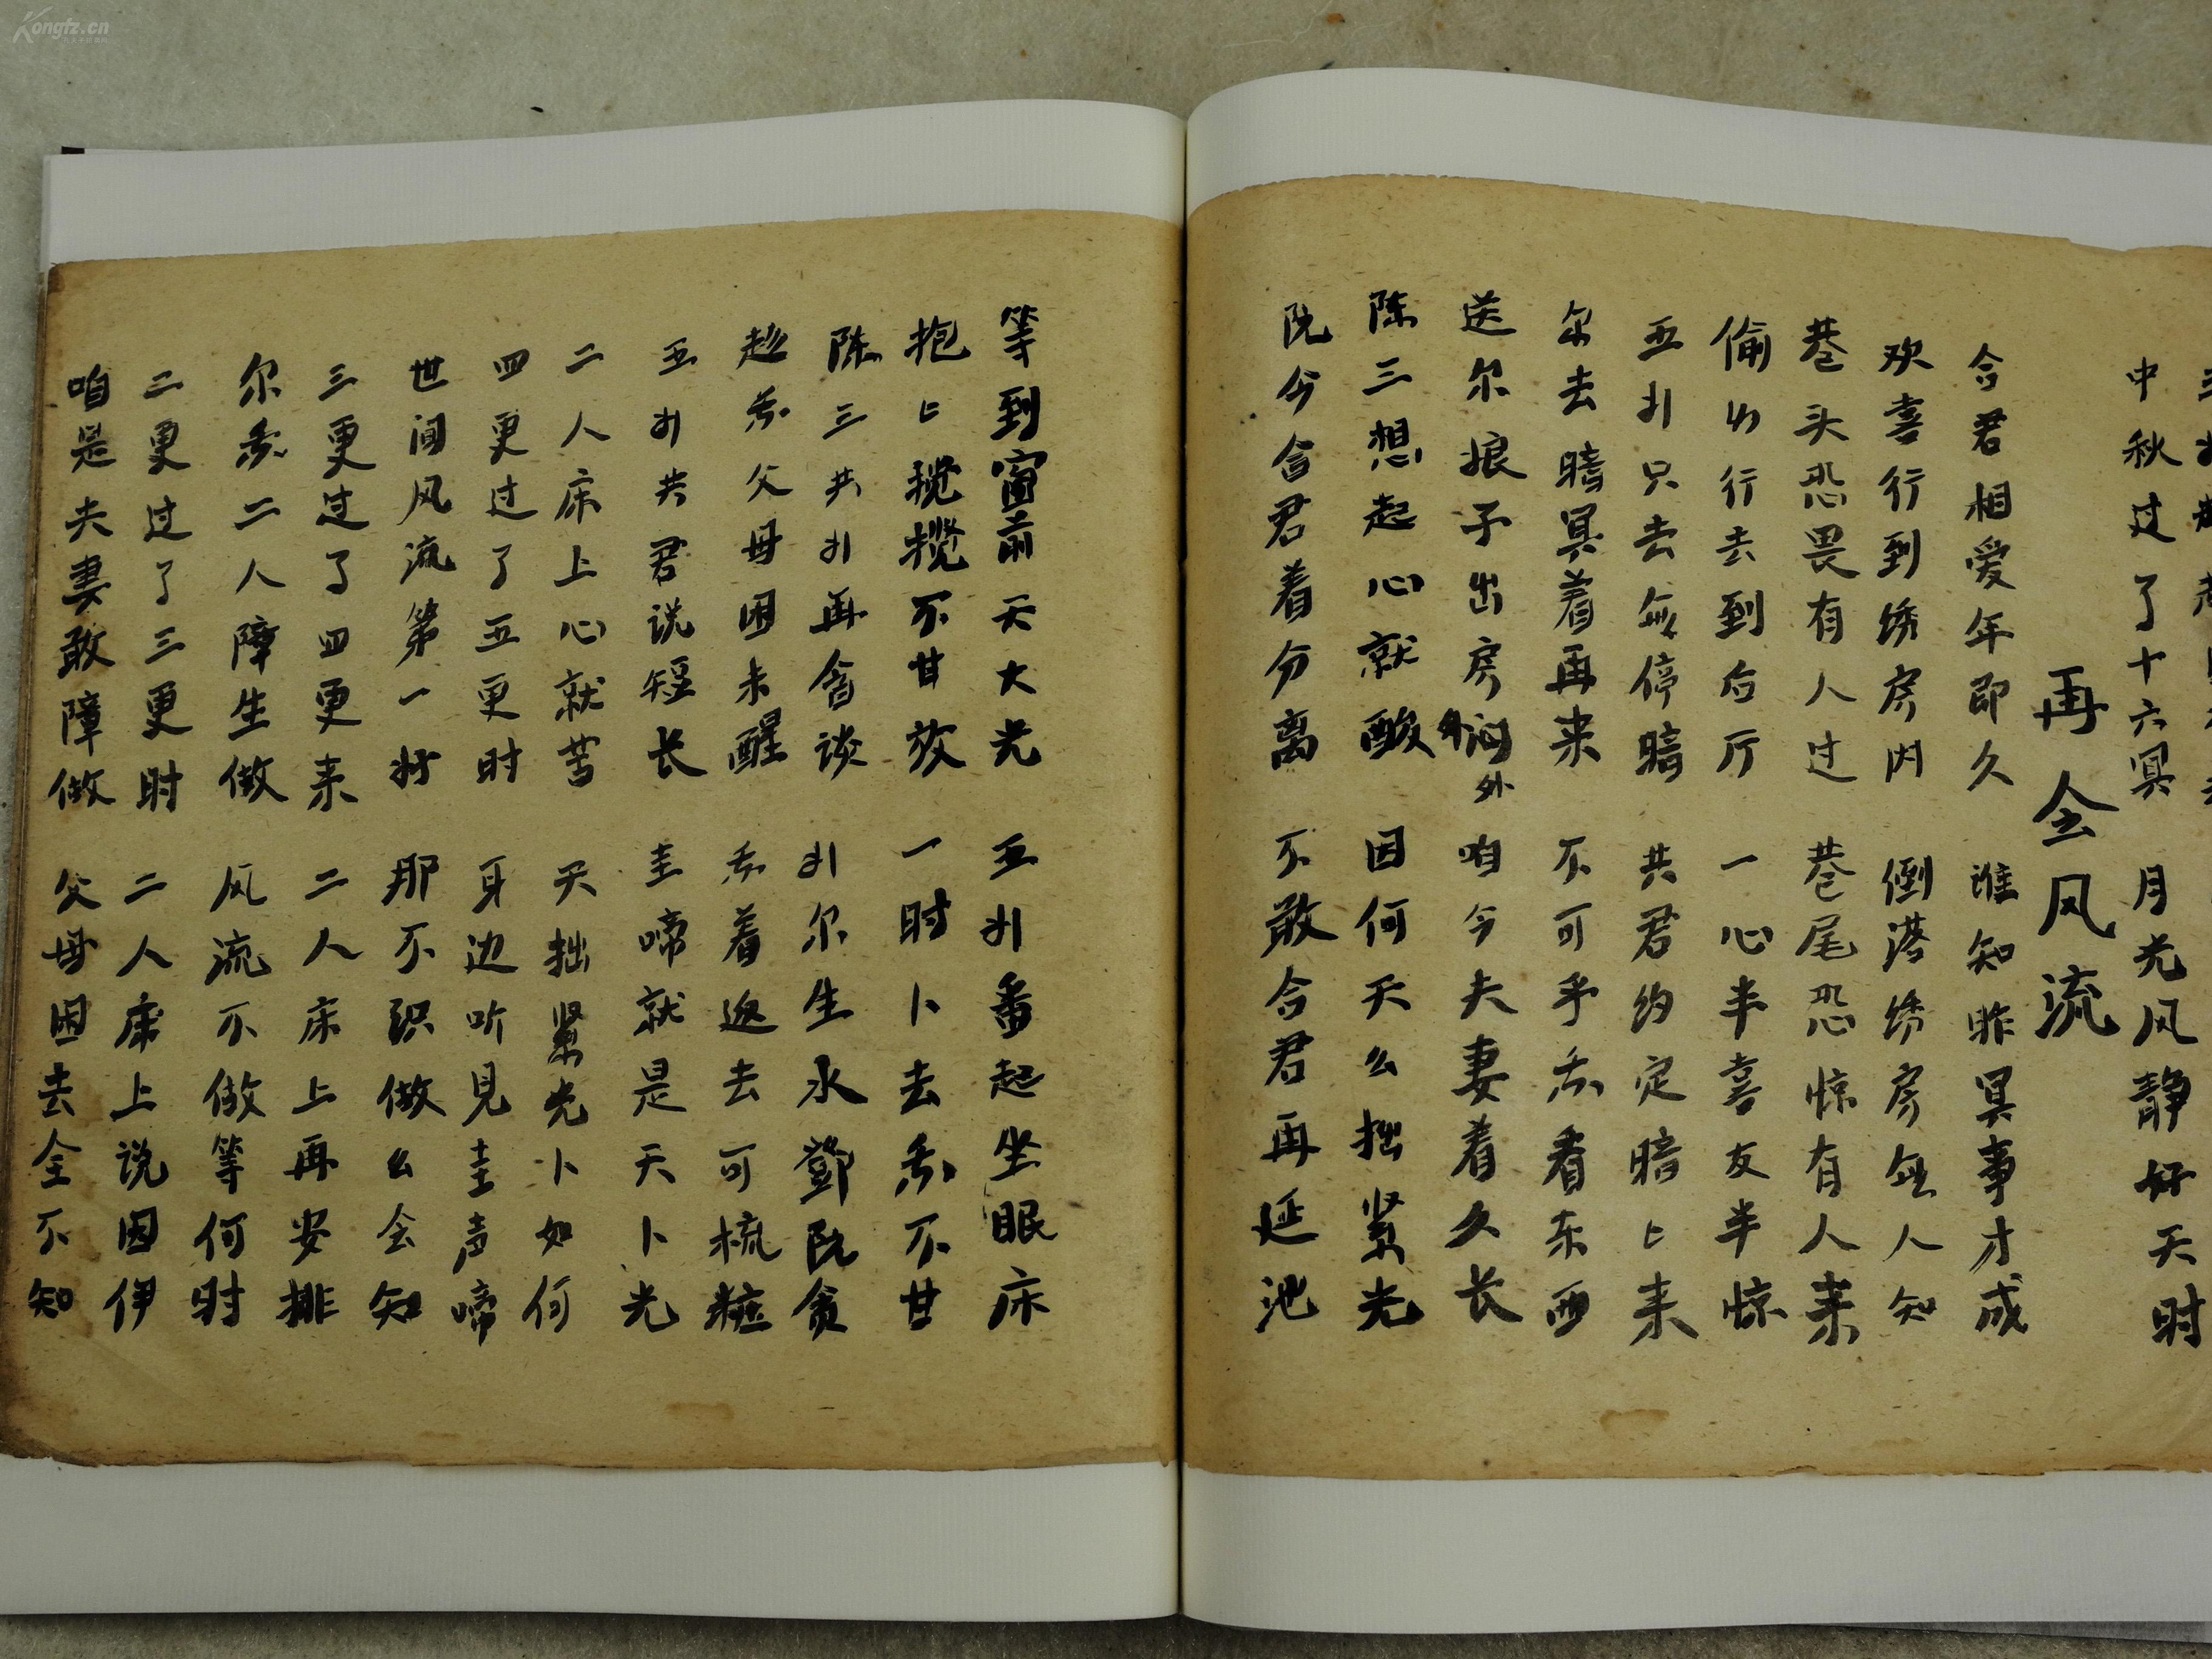 中秋过了十六冥 月光风静好天时
再会风流
合君相爱年即久 谁知昨冥事才成
欢喜行到绣房内 倒落绣房无人知
巷头恐畏有人过 巷尾恐惊有人来
偷 行去到后厅 一心半喜友半惊
五 只去无停暗 共君约定暗匕来
尔去暗冥着再来 不可乎 看东西
送尔娘子出房 外 咱今夫妻着久长
陈三想起心就酸 因何天么拙紧光
阮今合君着分离 不敢合君再延池
等到窗前天大光 五 番起坐眠床
抱匕揽揽不甘放 一时卜去 不甘
陈三共 再会谈 尔生水 阮贪
趁 父母困未醒 着返去可梳粧
五 共君说短长 圭啼就是天卜光
二人床上心就苦 天拙紧光卜如何
四更过了五更时 耳边听见圭声啼
世间风流第一好 那不识做么会知
三更过了四更来 二人床上再安排
尔 二人障生做 风流不做等何时
二更过了三更时 二人床上说因伊
咱是夫妻敢障做 父母困去全不知
Kongfz.cn